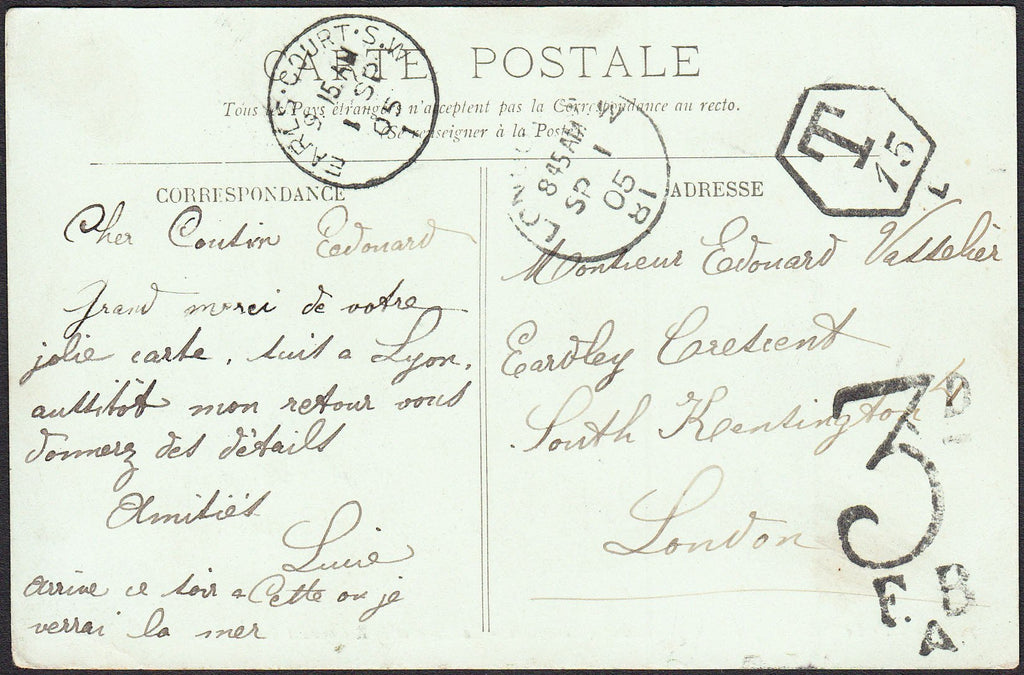 CARTE POSTALE
Tous les Pays étrangers n'acceptent pas la Correspondance au recto.
Se renseigner à la Poste
EARLS·COURT·S.W
9 15 AM
1
SP
05
LON W
8 45 AM
SP 1
05
81
T
15
L
CORRESPONDANCE
Cher Cousin Eedouard
Grand merci de votre
jolie carte, suis a Lyon,
aussitôt mon retour vous
donnerez des détails
Amitiés
Lucie
Arrive ce soir a Cette ou je
verrai la mer
ADRESSE
Monsieur Edouard Vasselier
Eardley Crescent
South Kensington
London
3D
F.B
A